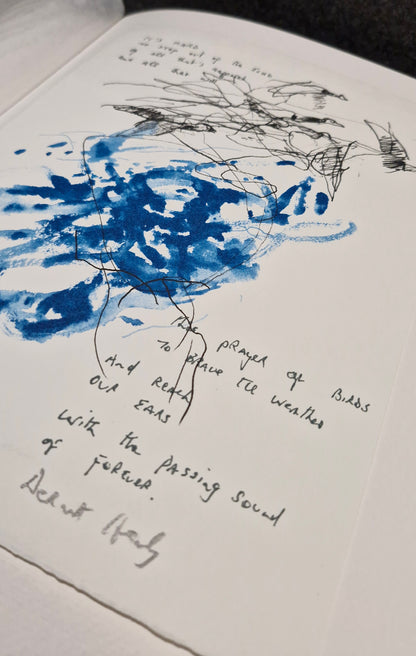 It's hard
to step out of the time
of all that's happened
and all that
The prayer of Birds
To Brave the weather
And Reach
OUR EARS
with the passing sound
of forever.
Dermot Healy